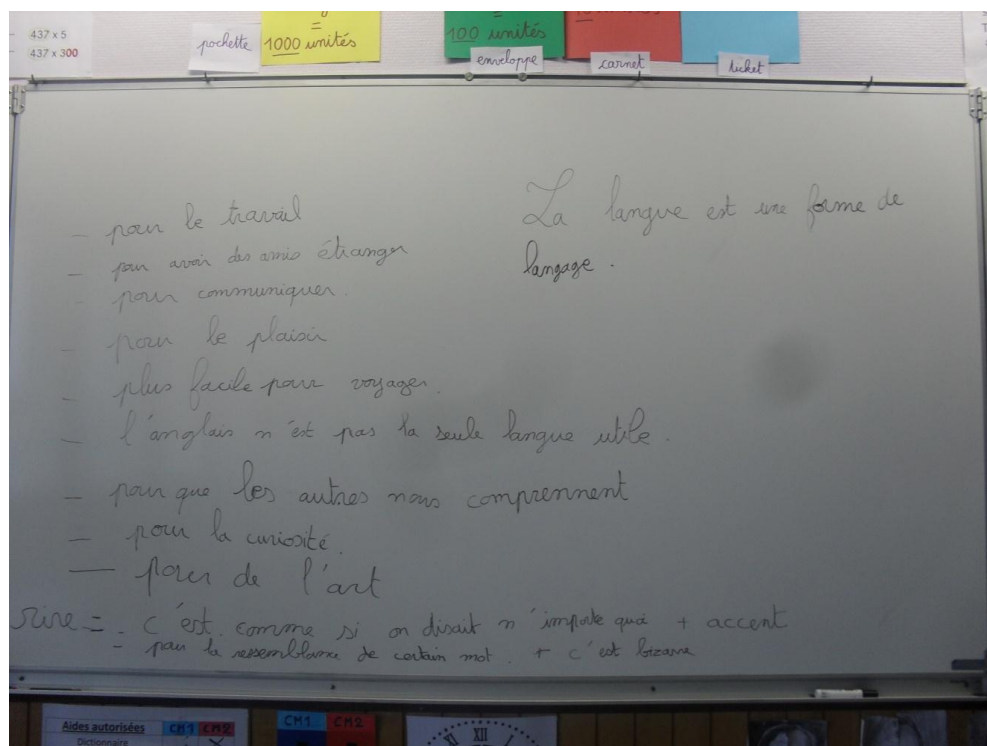 437 x 5
437 x 300
pochette
=
1000 unités
=
100 unités
enveloppe
carnet
ticket
- pour le travail
- pour avoir des amis étranger
- pour communiquer.
- pour le plaisir
- plus facile pour voyager.
- l'anglais n'est pas la seule langue utile.
- pour que les autres nous comprennent
- pour la curiosité.
- pour de l'art
rire = - c'est comme si on disait n'importe quoi + accent
- pour la ressemblance de certain mot. + c'est bizarre
La langue est une forme de
langage.
Aides autorisées CM1 CM2
Dictionnaire
CM1 CM2
XI XII